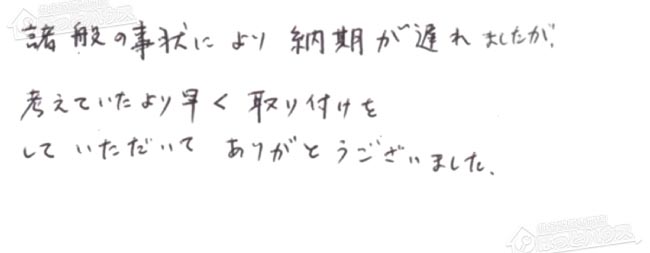 諸般の事状により納期が遅れましたが、
考えていたより早く取り付けを
していただいてありがとうございました。